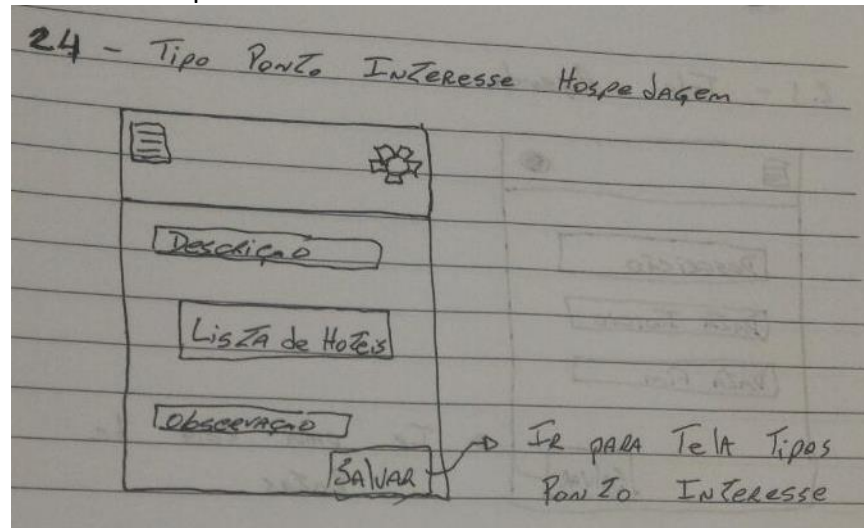 24 - Tipo Ponto Interesse Hospedagem
Descrição
Lista de Hoteis
Observação
Salvar
Ir para Tela Tipos
Ponto Interesse